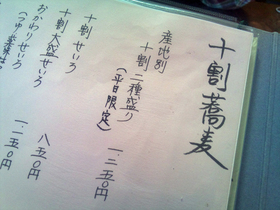 十割蕎麦
産地別
十割 二種盛り 一、二五〇円
(平日限定)
十割せいろ 八五〇円
十割大盛せいろ 一、一五〇円
おかわりせいろ